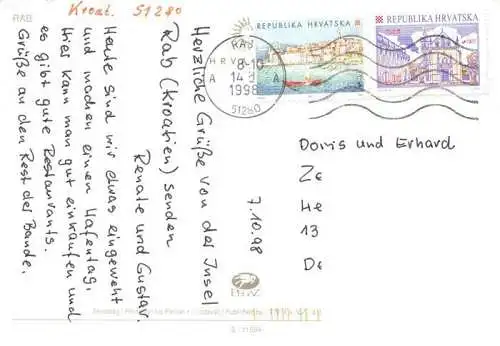 RAB
Kroat. 51280
REPUBLIKA HRVATSKA
REPUBLIKA HRVATSKA
RAB
HRV
8-10
A 14 8 A
1998
51280
Herzliche Grüße von der Insel
Rab (Kroatien) senden
Renate und Gustav.
Heute sind wir etwas eingeweht
und machen einen Hafentag.
Hier kann man gut einkaufen und
es gibt gute Restaurants.
Grüße an den Rest der Bande.
7.10.98
Doris und Erhard
Ze
He
13
De